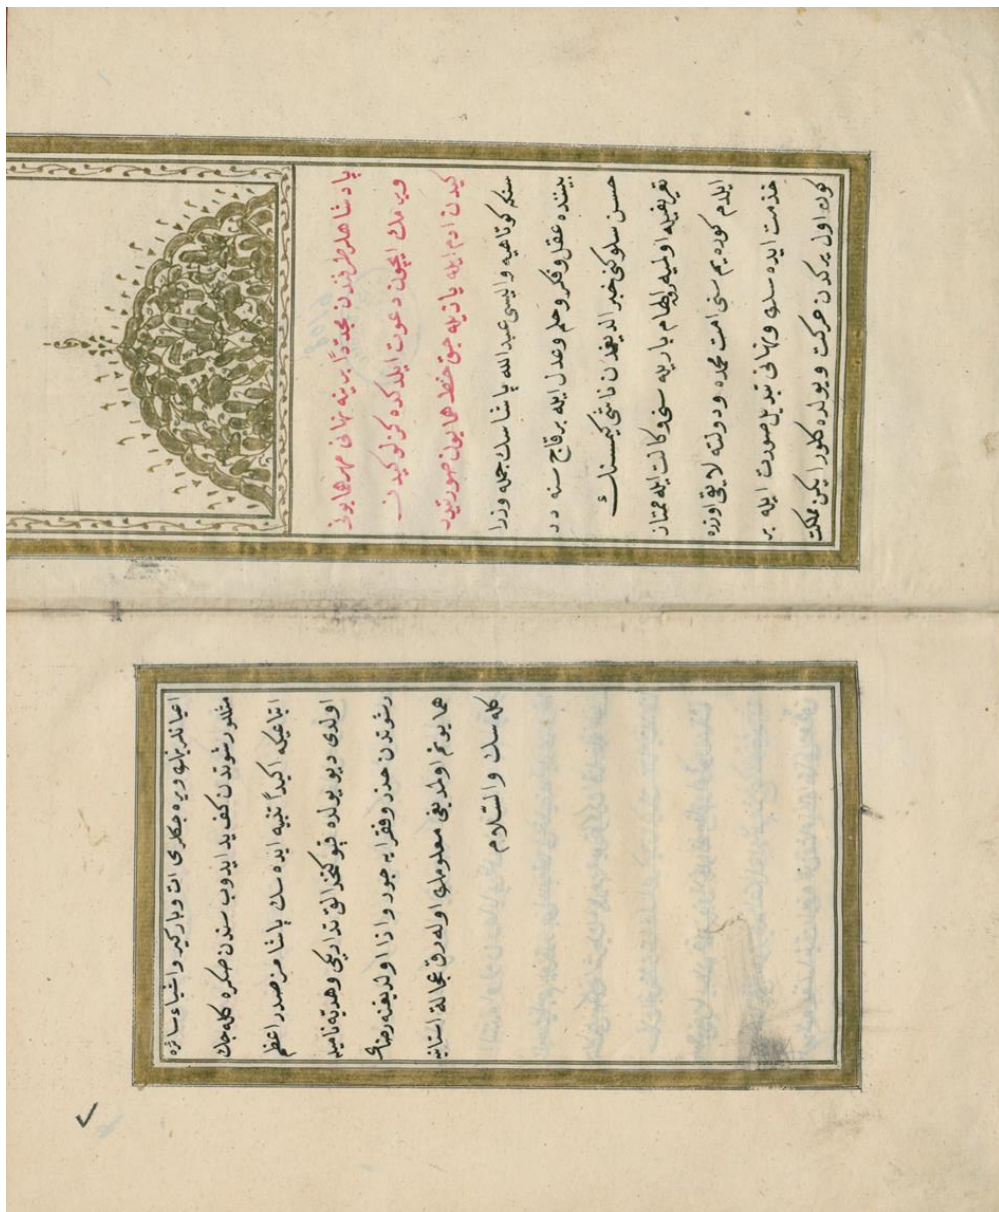 پادشاهلر طرفندن مجددًا برینه نهانی مهر همایونی
ویرمك ایچون دعوت ایلدکده کزلو کیدن
کیدن ادم ایله یازیله جق خط همایون صورتیدر
سنکه کوتاهیه والیسی عبدالله پاشاسك جمله وزرا
بیننده عقل و فکر و حلم و عدل ایله برقاچ سنه در
حسن سلوکنی خبر الدیغمدن ناشی کیمسنك
تعریفیله اولمیه رق الهام باری ایله سنی وکالت ایله ممتاز
ایلدم کوره یم سنی امت محمده و دولته لایق اوزره
خذمت ایده سك و نهانی تبدیل صورت ایله بر
کون اول یرکدن حرکت و یولده کلور ایکن مملکت
اعیانلرینك ویره جکلری ات و بارکیر و اشیاء سائره
مثللو رشوتدن کف ید ایدوب سندن صکره کله جك
اتباعیکه اکیداً تنبیه ایده سك پاشامز صدر اعظم
اولدی دیو یولده قپوکتخدالق تدارکی و هدیه نامیله
رشوتدن حذر و فقرایه جور و اذا اولدیغنه رضای
همایونم اولمدیغی معلومك اوله رق عجالة استانه یه
کله سك والسلام